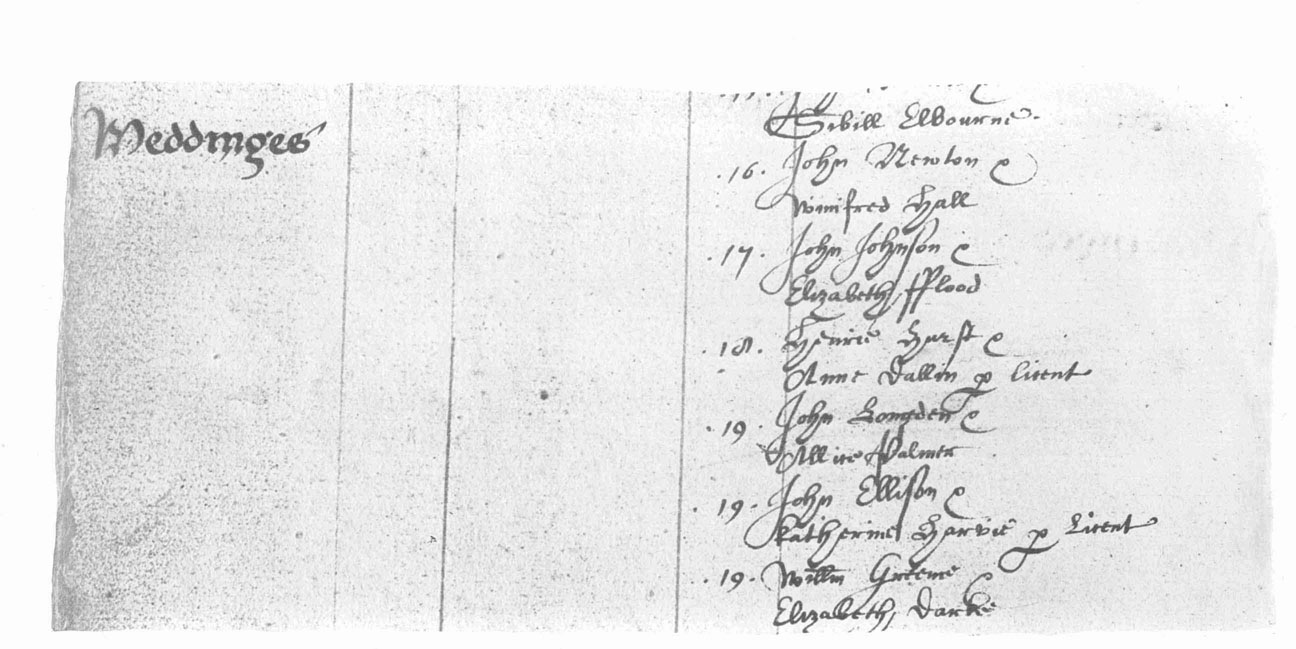 Weddinges
Sibill Elbourne.
.16. John Newton &
Winifred Hall
.17. John Johnson &
Elizabeth fflood
.18. Henrie Hurst &
Anne Dallin p licent
.19. John Longden &
Allice Palmer
.19. John Ellison &
Katherine Harvie p Licent
.19. Willm Greene &
Elizabeth Darke